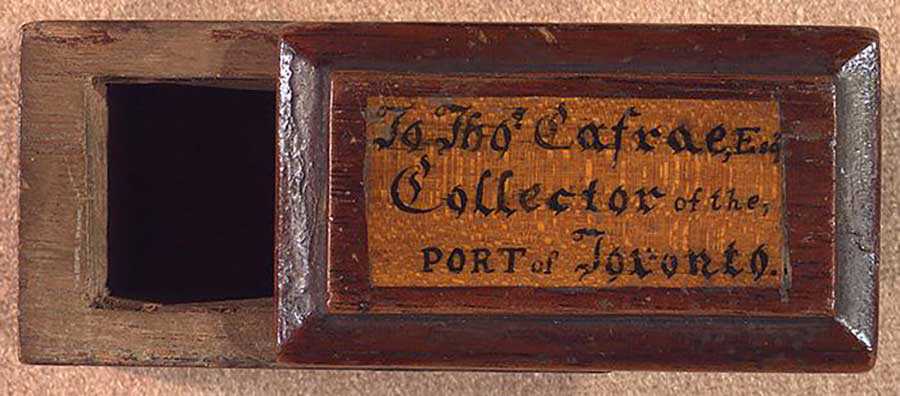 To Thos Cafrae, Esq
Collector of the,
PORT of Toronto.